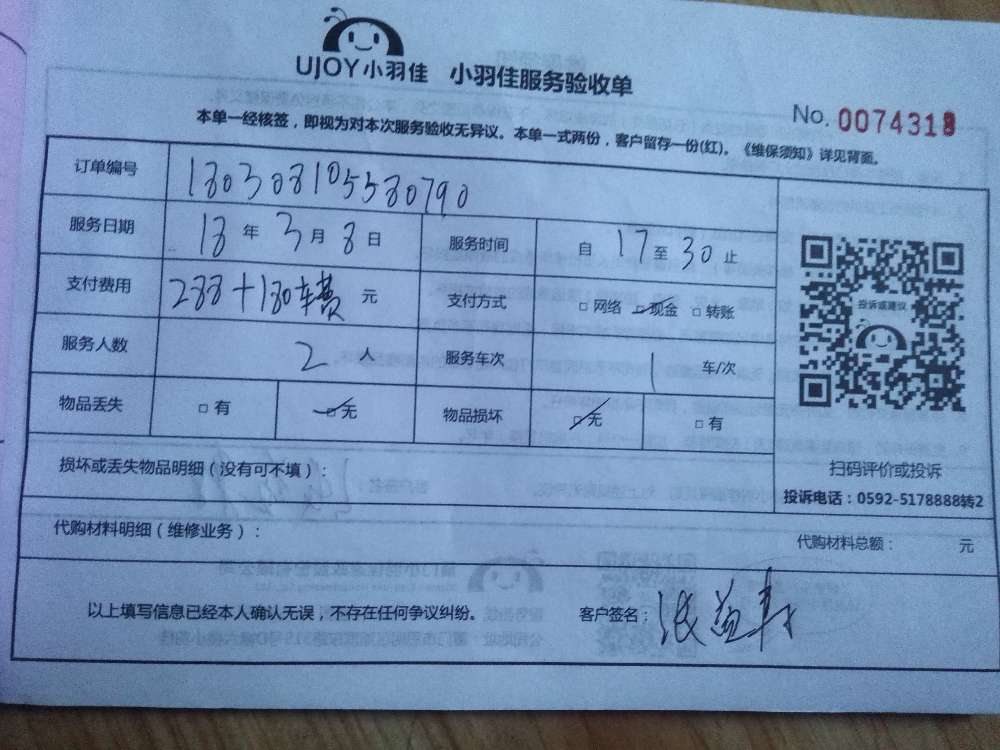 UJOY小羽佳 小羽佳服务验收单
No. 0074318
本单一经核签，即视为对本次服务验收无异议。本单一式两份，客户留存一份(红)。《维保须知》详见背面。
订单编号 180308105580790
服务日期 18 年 3 月 8 日 服务时间 自 17 至 30 止
支付费用 288+180车费 元 支付方式 □ 网络 □ 现金 □ 转账
服务人数 2 人 服务车次 1 车/次
物品丢失 □ 有 □ 无 物品损坏 □ 无 □ 有
投诉或建议
扫码评价或投诉
投诉电话：0592-5178888转2
损坏或丢失物品明细（没有可不填）：
代购材料明细（维修业务）：
代购材料总额： 元
以上填写信息已经本人确认无误，不存在任何争议纠纷。 客户签名：